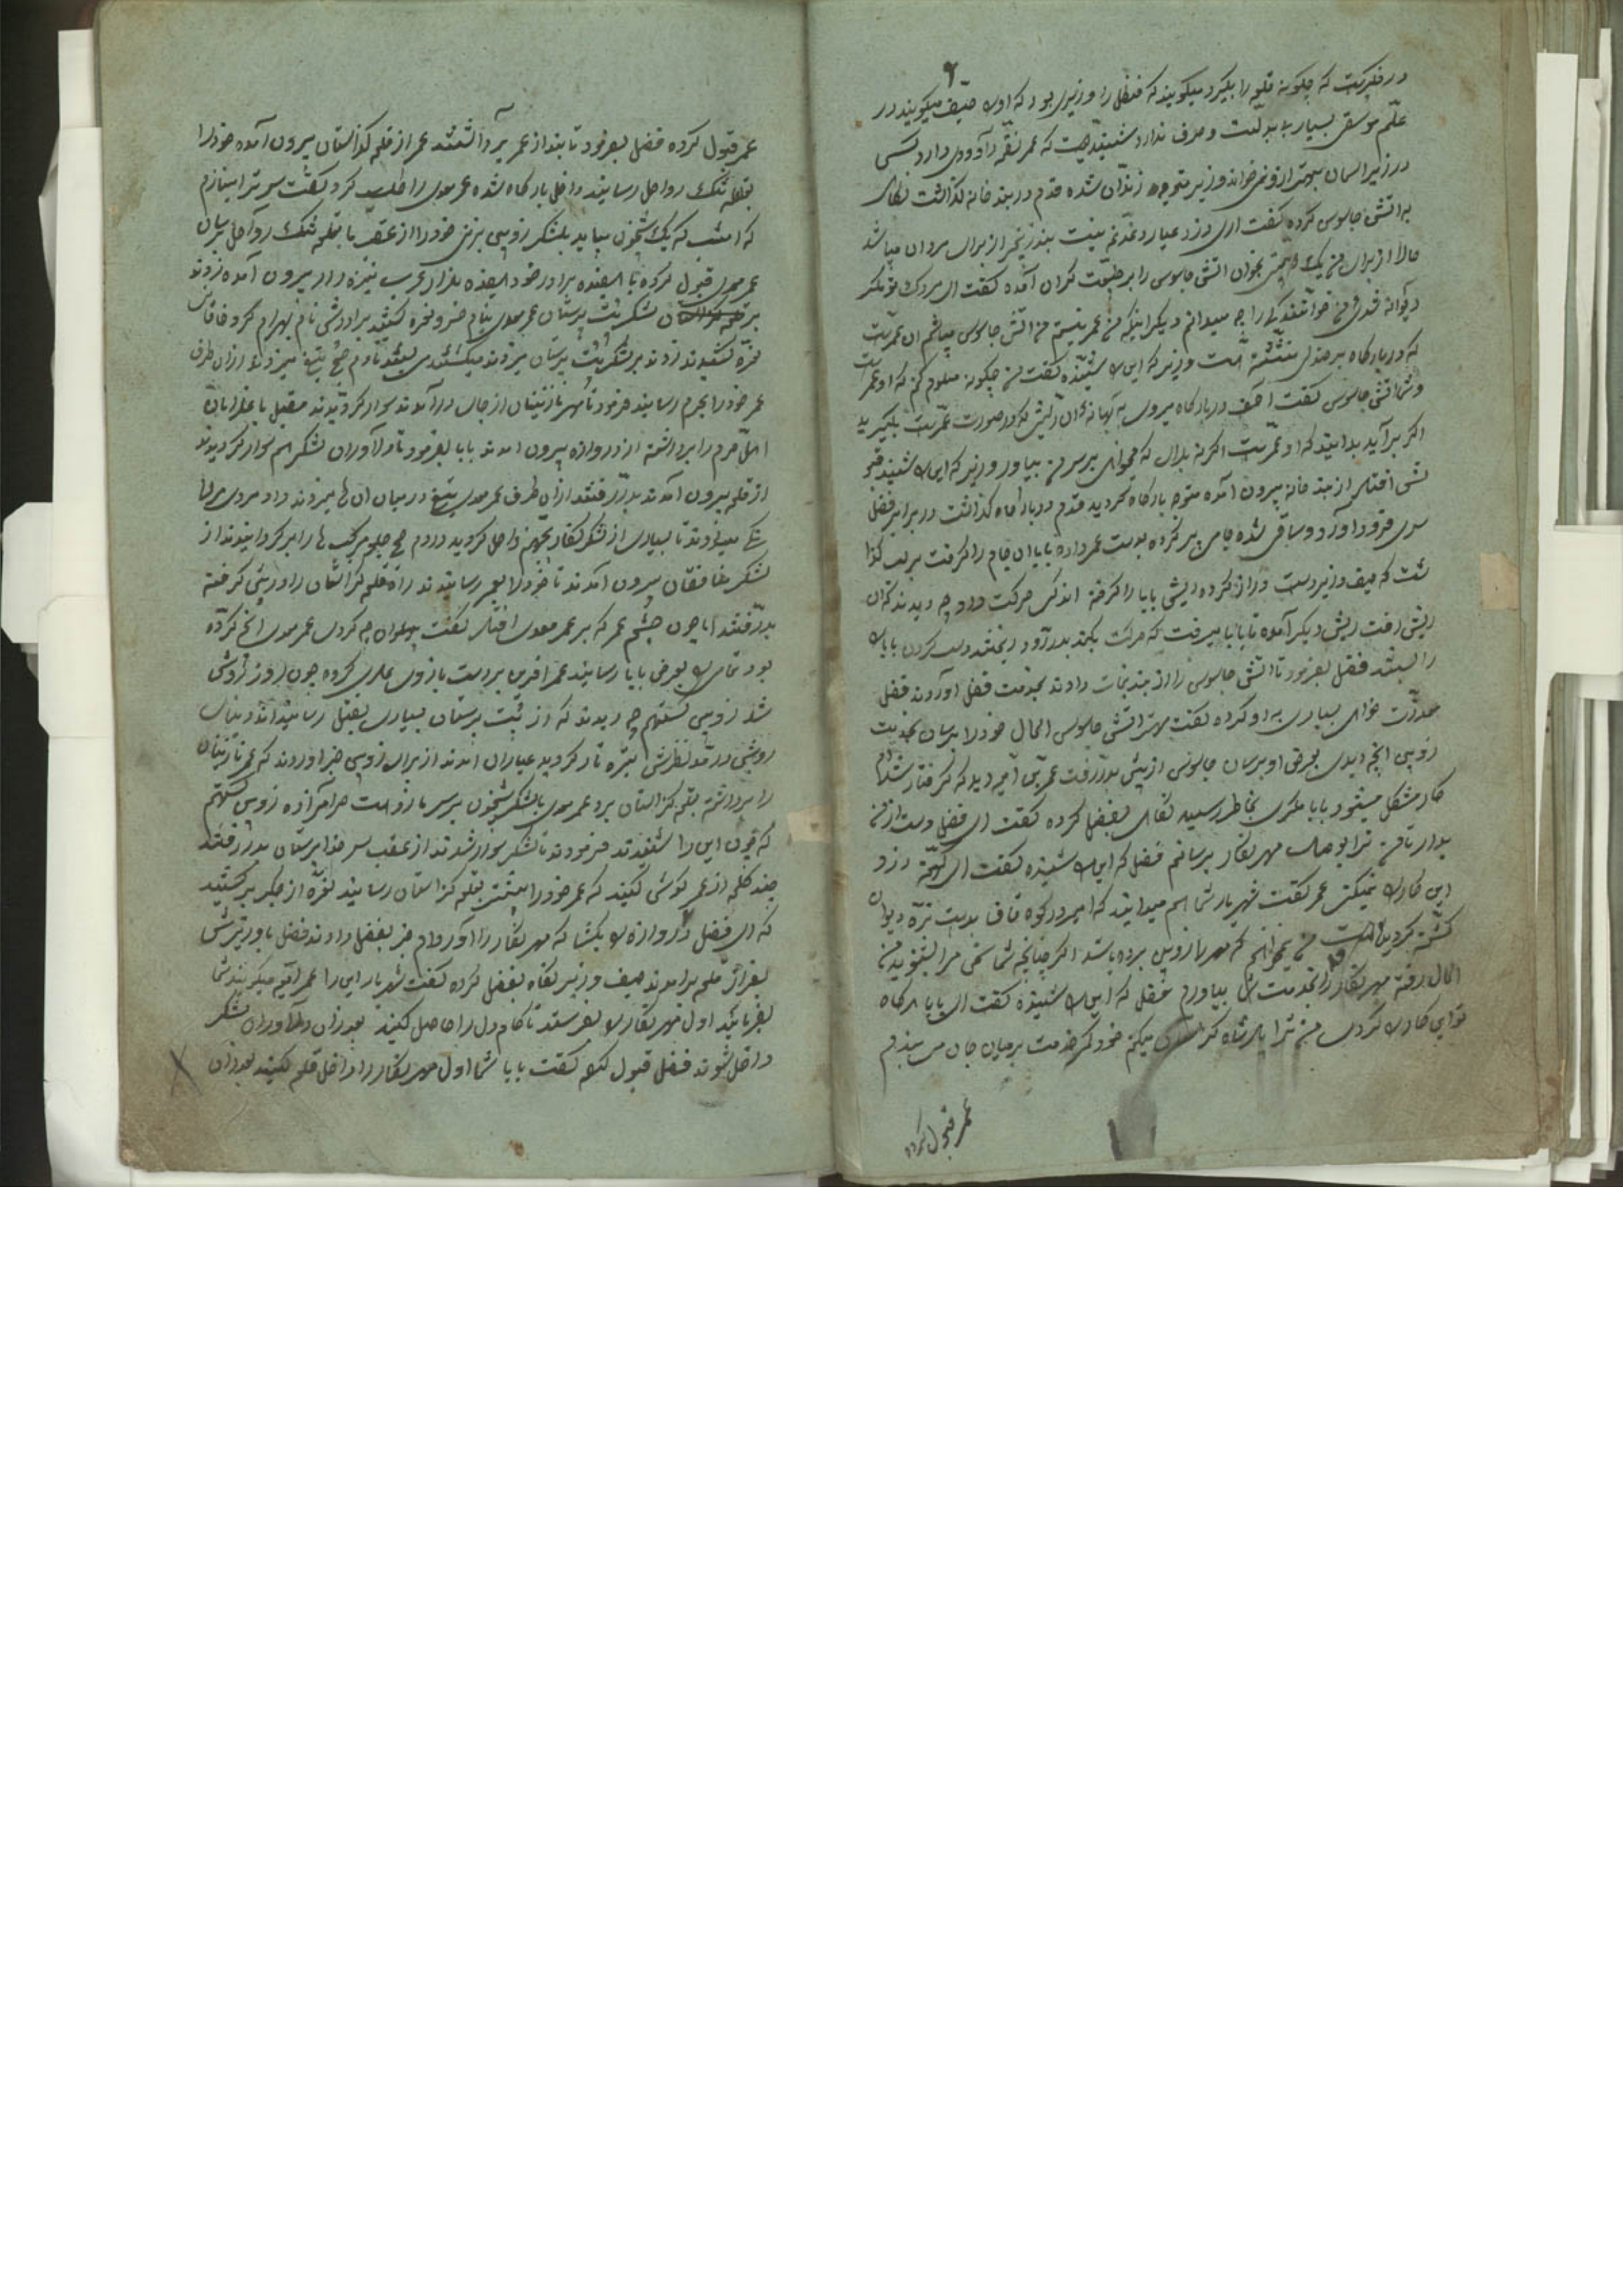 ۶
در فکر است که چگونه قلعه را بگیرد میگویند که فضل را وزیری بود که او را صیف میگویند در
علم موسقی بسیار بد بدلست و حرف ندارد شنیده است که عمر نغمه داوودی دارد کسی
در زیر اسمان بهتر از او نمیخواند وزیر متوجه زندان شده قدم در بند خانه گذاشت نگاه
به اتش جاسوس کرده گفت ای دزد عیار دغدغه نیست بند زنجیر از برای مردان میباشد
حالا از برای من یک بخوان اتش جاسوس را بر طبیعت گران آمده گفت ای مردک تو مگر
دیوانه شدی من خوانندگی را چه میدانم دیگر اینکه من عمر نیستم من اتش جاسوس میباشم ان عمر است
که در بارگاه بر صندلی نشسته است وزیر که این را شنیده گفت من چگونه معلوم کنم که او عمر است
اتش جاسوس گفت در بارگاه میروی به بهانه ان ریش در صورت عمر است بگیرید
اگر برآید بدانید که او عمر است اگر نه بلای که میخواهی بر سر من بیاور وزیر که این را شنید
از بند خانه بیرون آمده متوجه بارگاه گردید قدم در بارگاه گذاشت در برابر فضل
سری فرود آورد و ساقی شده جامی پر کرده بدست عمر داده بابا ان جام را گرفت بر لب
که صیف وزیر دست دراز کرده ریش بابا را گرفته اندکی حرکت داد چه دیدند که ان
ریش رفت ریش دیگر آمده تا بابا میرفت که حرکت بکند بدر آورد ریختند دست گردن بابا
را بستند فضل بفرمود تا اتش جاسوس را از بند نجات دادند بخدمت فضل آوردند فضل
معذرت خواهی بسیاری به او کرده گفت مهتر اتش جاسوس الحال خود را برسان بخدمت
زوبین انچه دیدی بعرض او برسان جاسوس از پیش بدر رفت عمر بن امیه دید که گرفتار شد
کار مشکل میشود بابا مکری بخاطر رسید نگاه بفضل کرده گفت ای فضل دست از من
بدار تا من ترا بوصال مهرنگار برسانم فضل که این را شنیده گفت ای کهنه دزد
این کار را نمیکنی عمر گفت شهریار شما هم میدانید که امیر در کوه قاف بدست نره دیوان
کشته گردیده است من نمیخواهم که مهر را زوبین برده باشد اگر چنانچه شما سخن مرا بشنوید من
الحال رفته مهرنگار را بخدمت شما بیاورم فضل که این را شنیده گفت ای بابا هرگاه
تو این کار را کردی من ترا پادشاه میکنم خود کمر خدمت بر میان جان می بندم
عمر قبول کرده
عمر قبول کرده فضل بفرمود تا بند از عمر برداشتند عمر از قلعه کراستان بیرون آمده خود را
بقلعه تنگ رواحل رسانید داخل بارگاه شده عمر معدی را طلب کرد گفت سر ترا بنازم
که امشب که یک شبخون بیاید بلشکر زوبین بزنی خود را از عقب ما بقلعه تنگ رواحل برسان
عمر معدی قبول کرده با هفده برادر خود هفده هزار عرب نیزه دار بیرون آمده زدند
بر لشکر بت پرستان عمر معدی بنام خسرو نعره کشید برادرش نام بهرام گرد خاقان
نعره کشیدند زدند بر لشکر بت پرستان میزدند میکشتند می بستند تا دم صبح تیغ میزدند از ان طرف
عمر خود را بحرم رسانید فرمود تا مهر نازنینان از جای درآمدند سوار گردیدند مقبل با عذرا بان
اهل حرم را برداشته از دروازه بیرون امدند بابا بفرمود تا دلاوران لشکر هم سوار گردیدند
از قلعه بیرون آمدند بدر رفتند از ان طرف عمر معدی تیغ در میان ان ها میزدند داد مردی مردانگی
میدادند تا بسیاری از لشکر کفار بجهنم واصل گردید در دم صبح جلو مرکب ها را برگردانیدند از
لشکر منافقان بیرون آمدند تا خود را بعمر رسانیدند راه قلعه کراستان را در پیش گرفته
بدر رفتند اما چون چشم عمر که بر عمر معدی افتاد گفت پهلوان چه کردی عمر معدی انچه کرده
بود تمامی را بعرض بابا رسانید عمر افرین بر دست بازوی معدی کرده چون روز روشن
شد زوبین گستهم چه دیدند که از بت پرستان بسیاری بقتل رسانیده اند دنیای
روشن در مد نظرش تیره تار گردید عیاران امدند از برای زوبین خبر اوردند که عمر نازنینان
را برداشته بقلعه کراستان برد عمر معدی با لشکر شبخون بر سر ما زده است حرامزاده زوبین گستهم
که چون این را شنیدند فرمودند تا لشکر سوار شدند از عقب سر خدا پرستان بدر رفتند
چند کلمه از عمر گوش کنید که عمر خود را بپشت قلعه کراستان رسانید نعره از جگر برکشید
که ای فضل دروازه را بگشا که مهرنگار را آوردم خبر بفضل دادند فضل با وزیرش
بفراز قلعه برامدند صیف وزیر نگاه بفضل کرده گفت شهریار این را عمر امیه میگویند شما
بفرمائید اول مهرنگار را بفرستد تا کام دل را حاصل کنید بعد از ان دلاوران لشکر
داخل شوند فضل قبول کرده گفت بابا شما اول مهرنگار را داخل قلعه کنید بعد از ان